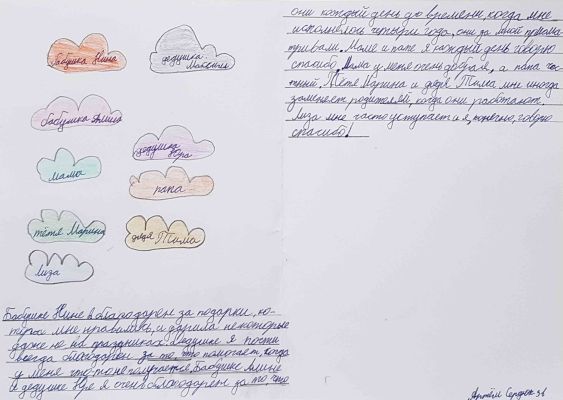 бабушка Нина
дедушка
Максим
бабушка Алина
дедушка
Юра
мама
папа
тётя Марина
дядя Тима
Лиза
Бабушке Нине я благодарен за подарки, ко-
торые мне нравились, и дарила некоторые
даже не на праздниках. Дедушке я почти
всегда благодарен за то, что помогает, когда
у меня что то не получается. Бабушке Алине
и дедушке Юре я очень благодарен за то, что
они каждый день до времени, когда мне
исполнилось четыре года, они за мной присма-
тривали. Маме и папе я каждый день говорю
спасибо. Мама у меня очень добрая, а папа
Тётя Марина и дядя Тима мне иногда
заменяет родителей, когда они работают.
Лиза мне часто уступает и я, конечно, говорю
спасибо!
Артём